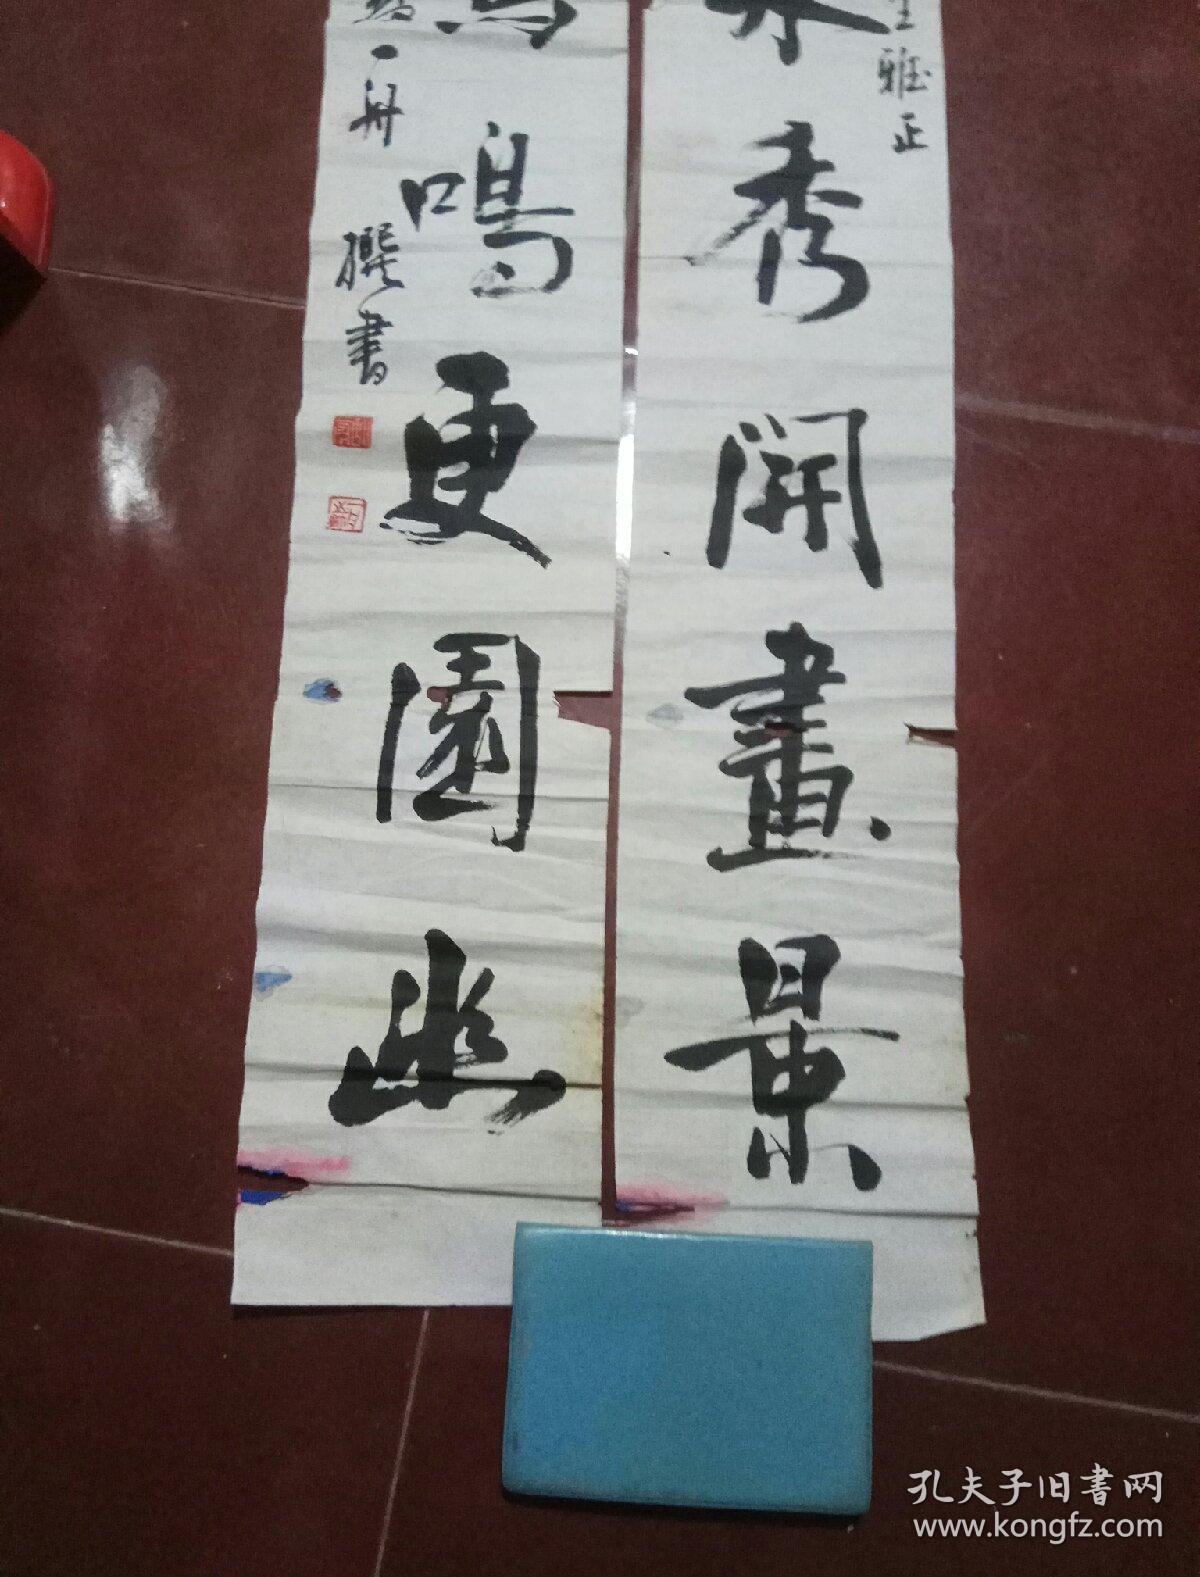 雅正
秀開畫景
鳴更園幽
一舟撰書
孔夫子旧書网
www.kongfz.com